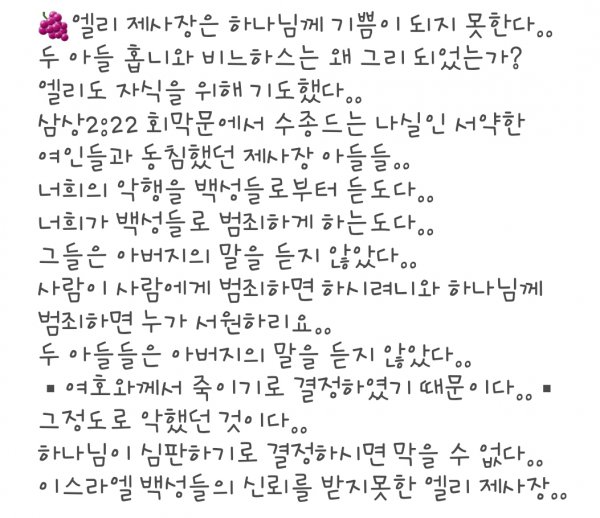 🍇엘리 제사장은 하나님께 기쁨이 되지 못한다。。
두 아들 홉니와 비느하스는 왜 그리 되었는가?
엘리도 자식을 위해 기도했다。。
삼상2:22 회막문에서 수종드는 나실인 서약한
여인들과 동침했던 제사장 아들들。。
너희의 악행을 백성들로부터 듣도다。。
너희가 백성들로 범죄하게 하는도다。。
그들은 아버지의 말을 듣지 않았다。。
사람이 사람에게 범죄하면 하시려니와 하나님께
범죄하면 누가 서원하리요。。
두 아들들은 아버지의 말을 듣지 않았다。。
▪여호와께서 죽이기로 결정하였기 때문이다。。▪
그정도로 악했던 것이다。。
하나님이 심판하기로 결정하시면 막을 수 없다。。
이스라엘 백성들의 신뢰를 받지못한 엘리 제사장。。